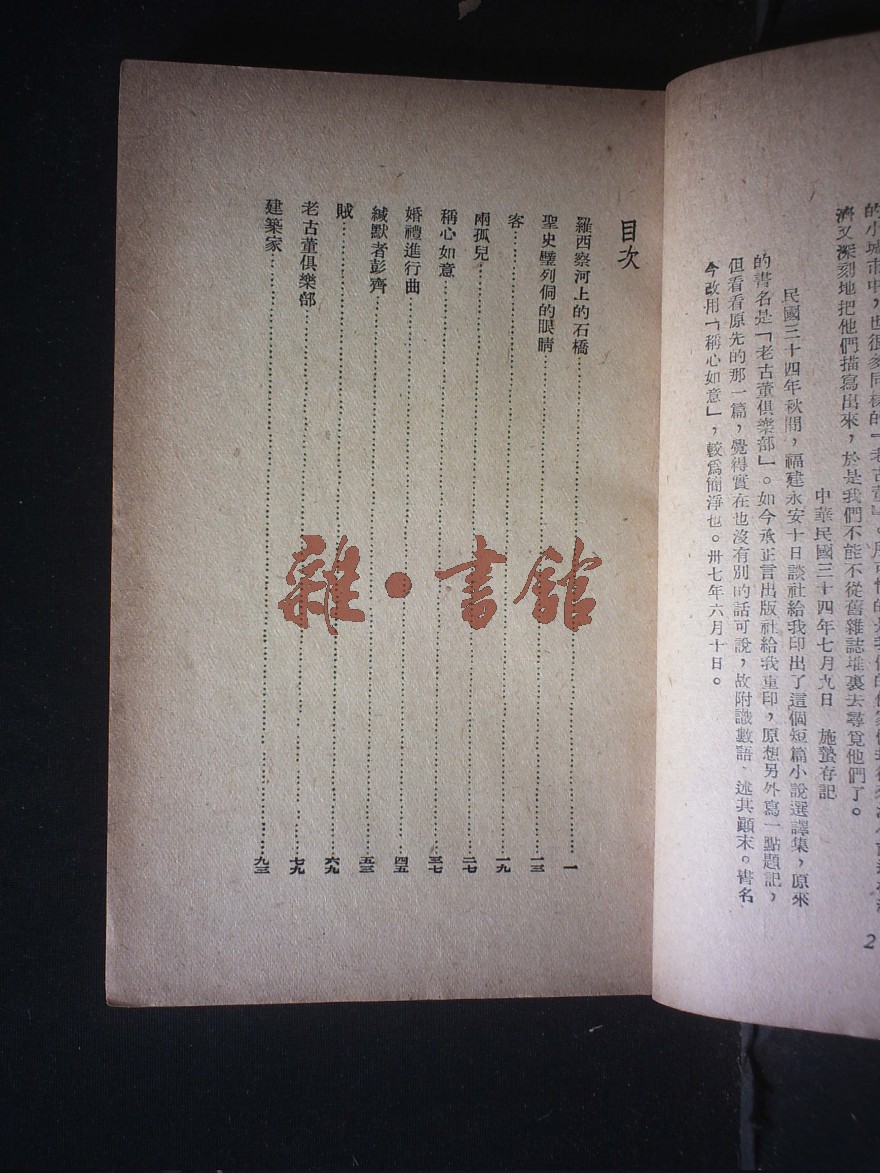 的小城市中，也很多同樣的「老古董」。
濟又深刻地把他們描寫出來，於是我們不能不從舊雜誌堆裏去尋覓他們了。
中華民國三十四年七月九日　施蟄存記
民國三十四年秋間，福建永安十日談社給我印出了這個短篇小說選譯集，原來
的書名是「老古董俱樂部」。如今承正言出版社給我重印，原想另外寫一點題記，
但看看原先的那一篇，覺得實在也沒有別的話可說，故附識數語，述其顚末。書名
今改用「稱心如意」，較爲簡淨也。卅七年六月十日。
2
目次
羅西察河上的石橋…一
聖史璧列侗的眼睛…一三
客…一九
兩孤兒…二七
稱心如意…三七
婚禮進行曲…四五
緘默者彭齊…五三
賊…六九
老古董俱樂部…七九
建築家…九三
雜·書館